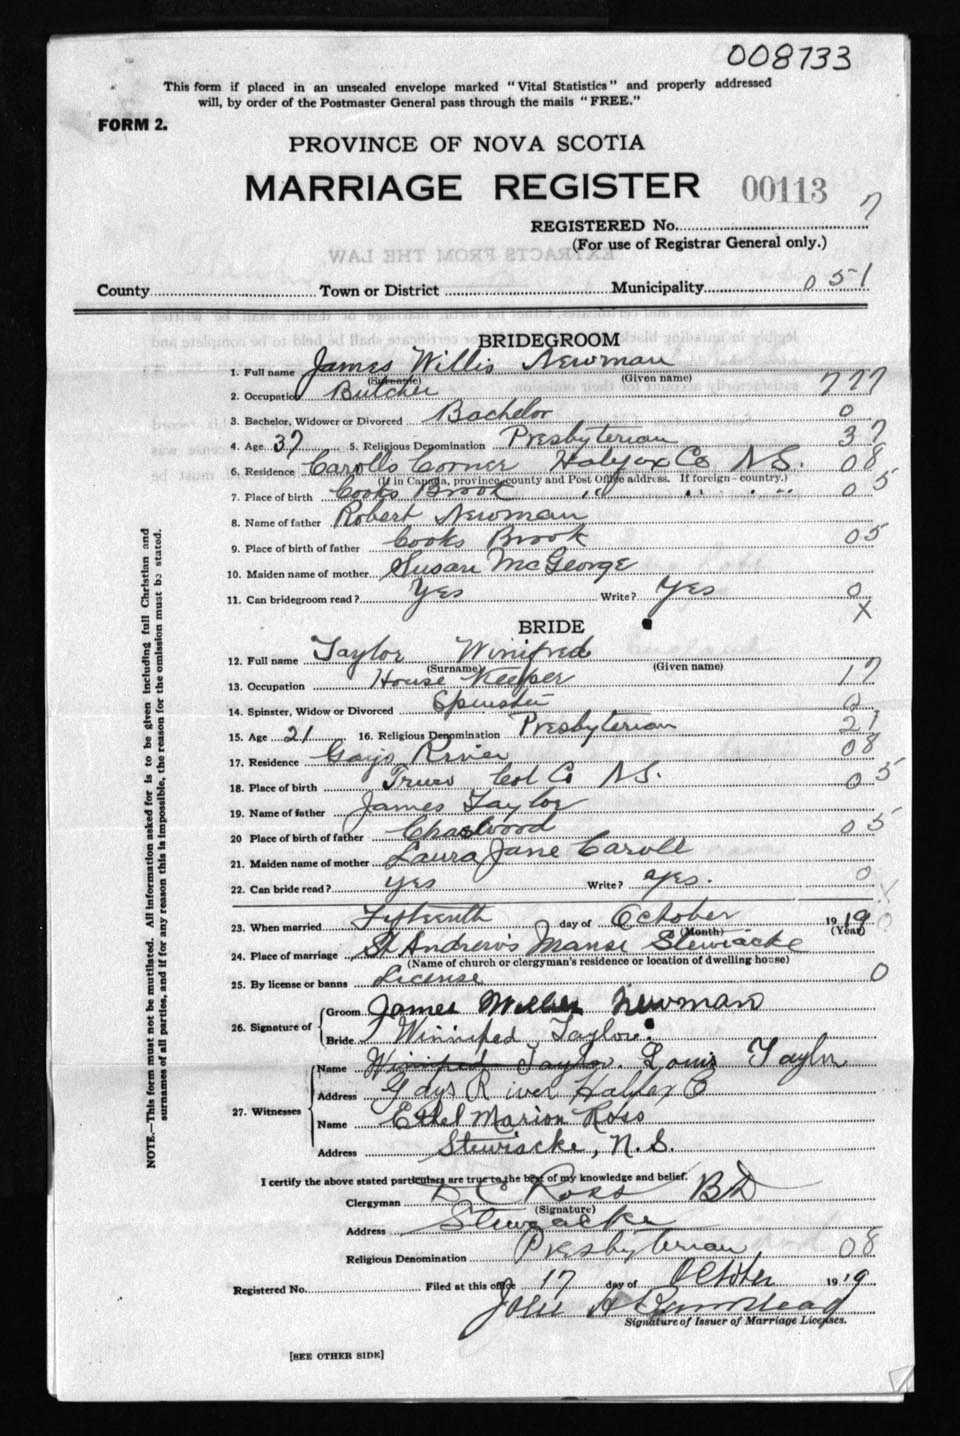 008733
This form if placed in an unsealed envelope marked "Vital Statistics" and properly addressed
will, by order of the Postmaster General pass through the mails "FREE."
FORM 2.
PROVINCE OF NOVA SCOTIA
MARRIAGE REGISTER 00113
REGISTERED No. 7
(For use of Registrar General only.)
EXTRACTS FROM THE LAW
County Town or District Municipality 051
BRIDEGROOM
1. Full name James Willis Newman
(Surname) (Given name) 777
2. Occupation Butcher
3. Bachelor, Widower or Divorced Bachelor 0
4. Age 37 5. Religious Denomination Presbyterian 37
6. Residence Carolls Corner Halifax Co N.S. 08
(If in Canada, province, county and Post Office address. If foreign—country.)
7. Place of birth Cooks Brook " " " " 05
8. Name of father Robert Newman
9. Place of birth of father Cooks Brook 05
10. Maiden name of mother Susan McGeorge
11. Can bridegroom read? Yes Write? Yes 0
X
BRIDE
12. Full name Taylor Winifred
(Surname) (Given name)
13. Occupation House Keeper 17
14. Spinster, Widow or Divorced Spinster 0
15. Age 21 16. Religious Denomination Presbyterian 21
17. Residence Gays River 08
18. Place of birth Truro Col Co N.S. 05
19. Name of father James Taylor
20 Place of birth of father 05
21. Maiden name of mother Laura Jane Caroll
22. Can bride read? yes Write? yes. 0
X
23. When married Fifteenth day of October 1919 0
(Month) (Year)
24. Place of marriage St Andrew's Manse Stewiacke
(Name of church or clergyman's residence or location of dwelling house)
25. By license or banns License 0
26. Signature of Groom James Willis Newman
Bride Winnifred Taylor.
27. Witnesses Name Winifred Taylor. Louis Taylor
Address Gays River Halifax C
Name Ethel Marion Ross
Address Stewiacke, N.S.
I certify the above stated particulars are true to the best of my knowledge and belief.
Clergyman Ross B.D
(Signature)
Address Stewiacke
Religious Denomination Presbyterian 08
Registered No. Filed at this office 17 day of October 1919
Signature of Issuer of Marriage Licenses.
[SEE OTHER SIDE]
NOTE.—This form must not be mutilated. All information asked for is to be given including full Christian and
surnames of all parties, and if for any reason this is impossible, the reason for the omission must be stated.